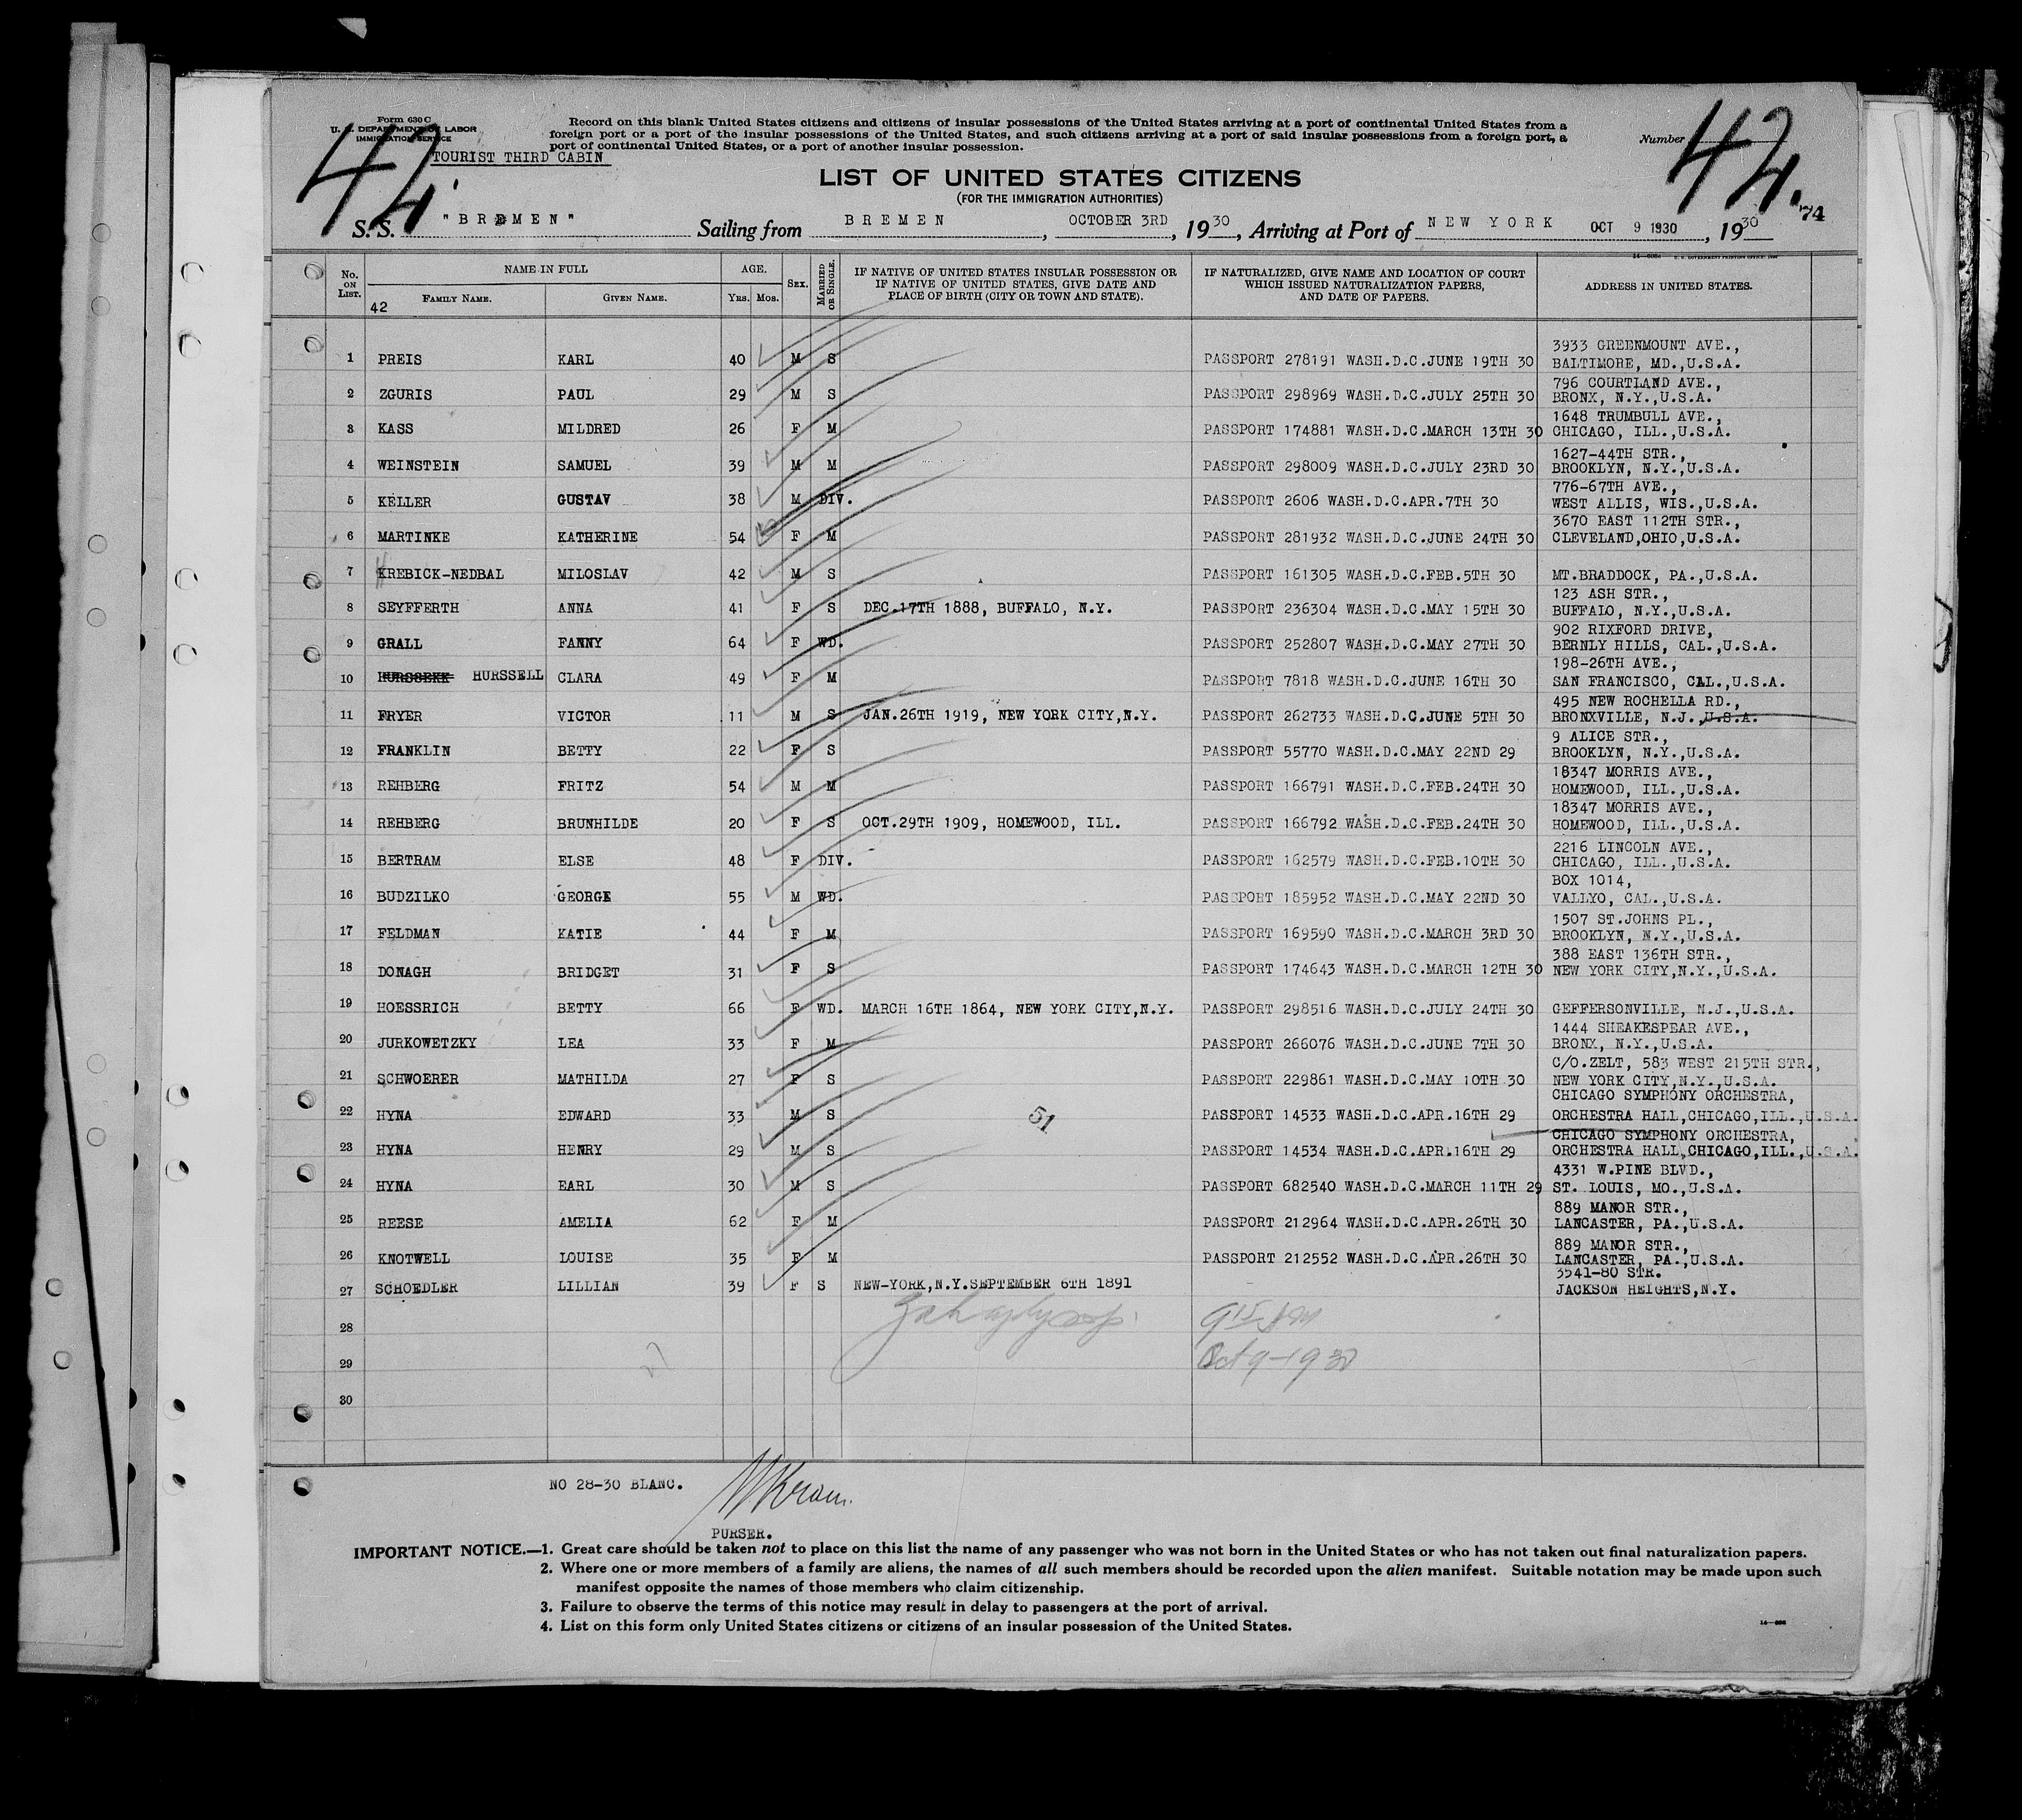 Form 630 C
U. S. DEPARTMENT OF LABOR
IMMIGRATION SERVICE
TOURIST THIRD CABIN
42
Record on this blank United States citizens and citizens of insular possessions of the United States arriving at a port of continental United States from a
foreign port or a port of the insular possessions of the United States, and such citizens arriving at a port of said insular possessions from a foreign port, a
port of continental United States, or a port of another insular possession.
Number 42.
LIST OF UNITED STATES CITIZENS
(FOR THE IMMIGRATION AUTHORITIES)
74
S. S. "BREMEN" Sailing from BREMEN, OCTOBER 3RD, 1930, Arriving at Port of NEW YORK OCT 9 1930, 1930
No. ON LIST. NAME IN FULL AGE. SEX. MARRIED OR SINGLE. IF NATIVE OF UNITED STATES INSULAR POSSESSION OR IF NATIVE OF UNITED STATES, GIVE DATE AND PLACE OF BIRTH (CITY OR TOWN AND STATE). IF NATURALIZED, GIVE NAME AND LOCATION OF COURT WHICH ISSUED NATURALIZATION PAPERS, AND DATE OF PAPERS. ADDRESS IN UNITED STATES.
42 FAMILY NAME. GIVEN NAME. Yrs. Mos.
3933 GREENMOUNT AVE.,
1 PREIS KARL 40 M S PASSPORT 278191 WASH.D.C.JUNE 19TH 30 BALTIMORE, MD.,U.S.A.
796 COURTLAND AVE.,
2 ZGURIS PAUL 29 M S PASSPORT 298969 WASH.D.C.JULY 25TH 30 BRONX, N.Y.,U.S.A.
1648 TRUMBULL AVE.,
3 KASS MILDRED 26 F M PASSPORT 174881 WASH.D.C.MARCH 13TH 30 CHICAGO, ILL.,U.S.A.
1627-44TH STR.,
4 WEINSTEIN SAMUEL 39 M M PASSPORT 298009 WASH.D.C.JULY 23RD 30 BROOKLYN, N.Y.,U.S.A.
776-67TH AVE.,
5 KELLER GUSTAV 38 M DIV. PASSPORT 2606 WASH.D.C.APR.7TH 30 WEST ALLIS, WIS.,U.S.A.
3670 EAST 112TH STR.,
6 MARTINKE KATHERINE 54 F M PASSPORT 281932 WASH.D.C.JUNE 24TH 30 CLEVELAND,OHIO,U.S.A.
7 KREBICK-NEDBAL MILOSLAV 42 M S PASSPORT 161305 WASH.D.C.FEB.5TH 30 MT.BRADDOCK, PA.,U.S.A.
123 ASH STR.,
8 SEYFFERTH ANNA 41 F S DEC.17TH 1888, BUFFALO, N.Y. PASSPORT 236304 WASH.D.C.MAY 15TH 30 BUFFALO, N.Y.,U.S.A.
902 RIXFORD DRIVE,
9 GRALL FANNY 64 F WD. PASSPORT 252807 WASH.D.C.MAY 27TH 30 BERNLY HILLS, CAL.,U.S.A.
198-26TH AVE.,
10 HURSSEKK HURSSELL CLARA 49 F M PASSPORT 7818 WASH.D.C.JUNE 16TH 30 SAN FRANCISCO, CAL.,U.S.A.
495 NEW ROCHELLA RD.,
11 FRYER VICTOR 11 M S JAN.26TH 1919, NEW YORK CITY,N.Y. PASSPORT 262733 WASH.D.C.JUNE 5TH 30 BRONXVILLE, N.J.,U.S.A.
9 ALICE STR.,
12 FRANKLIN BETTY 22 F S PASSPORT 55770 WASH.D.C.MAY 22ND 29 BROOKLYN, N.Y.,U.S.A.
18347 MORRIS AVE.,
13 REHBERG FRITZ 54 M M PASSPORT 166791 WASH.D.C.FEB.24TH 30 HOMEWOOD, ILL.,U.S.A.
18347 MORRIS AVE.,
14 REHBERG BRUNHILDE 20 F S OCT.29TH 1909, HOMEWOOD, ILL. PASSPORT 166792 WASH.D.C.FEB.24TH 30 HOMEWOOD, ILL.,U.S.A.
2216 LINCOLN AVE.,
15 BERTRAM ELSE 48 F DIV. PASSPORT 162579 WASH.D.C.FEB.10TH 30 CHICAGO, ILL.,U.S.A.
BOX 1014,
16 BUDZILKO GEORGE 55 M WD. PASSPORT 185952 WASH.D.C.MAY 22ND 30 VALLYO, CAL.,U.S.A.
1507 ST.JOHNS PL.,
17 FELDMAN KATIE 44 F M PASSPORT 169590 WASH.D.C.MARCH 3RD 30 BROOKLYN, N.Y.,U.S.A.
388 EAST 136TH STR.,
18 DONAGH BRIDGET 31 F S PASSPORT 174643 WASH.D.C.MARCH 12TH 30 NEW YORK CITY,N.Y.,U.S.A.
19 HOESSRICH BETTY 66 F WD. MARCH 16TH 1864, NEW YORK CITY,N.Y. PASSPORT 298516 WASH.D.C.JULY 24TH 30 GEFFERSONVILLE, N.J.,U.S.A.
1444 SHEAKESPEAR AVE.,
20 JURKOWETZKY LEA 33 F M PASSPORT 266076 WASH.D.C.JUNE 7TH 30 BRONX, N.Y.,U.S.A.
C/O.ZELT, 583 WEST 215TH STR.,
21 SCHWOERER MATHILDA 27 F S PASSPORT 229861 WASH.D.C.MAY 10TH 30 NEW YORK CITY,N.Y.,U.S.A.
CHICAGO SYMPHONY ORCHESTRA,
22 HYNA EDWARD 33 M S 51 PASSPORT 14533 WASH.D.C.APR.16TH 29 ORCHESTRA HALL,CHICAGO,ILL.,U.S.A.
CHICAGO SYMPHONY ORCHESTRA,
23 HYNA HENRY 29 M S PASSPORT 14534 WASH.D.C.APR.16TH 29 ORCHESTRA HALL,CHICAGO,ILL.,U.S.A.
4331 W.PINE BLVD.,
24 HYNA EARL 30 M S PASSPORT 682540 WASH.D.C.MARCH 11TH 29 ST. LOUIS, MO.,U.S.A.
889 MANOR STR.,
25 REESE AMELIA 62 F M PASSPORT 212964 WASH.D.C.APR.26TH 30 LANCASTER, PA.,U.S.A.
889 MANOR STR.,
26 KNOTWELL LOUISE 35 F M PASSPORT 212552 WASH.D.C.APR.26TH 30 LANCASTER, PA.,U.S.A.
3541-80 STR.
27 SCHOEDLER LILLIAN 39 F S NEW-YORK,N.Y.SEPTEMBER 6TH 1891 JACKSON HEIGHTS,N.Y.
28
29 Oct 9-1930
30
NO 28-30 BLANC.
PURSER.
IMPORTANT NOTICE.—1. Great care should be taken not to place on this list the name of any passenger who was not born in the United States or who has not taken out final naturalization papers.
2. Where one or more members of a family are aliens, the names of all such members should be recorded upon the alien manifest. Suitable notation may be made upon such
manifest opposite the names of those members who claim citizenship.
3. Failure to observe the terms of this notice may result in delay to passengers at the port of arrival.
4. List on this form only United States citizens or citizens of an insular possession of the United States.